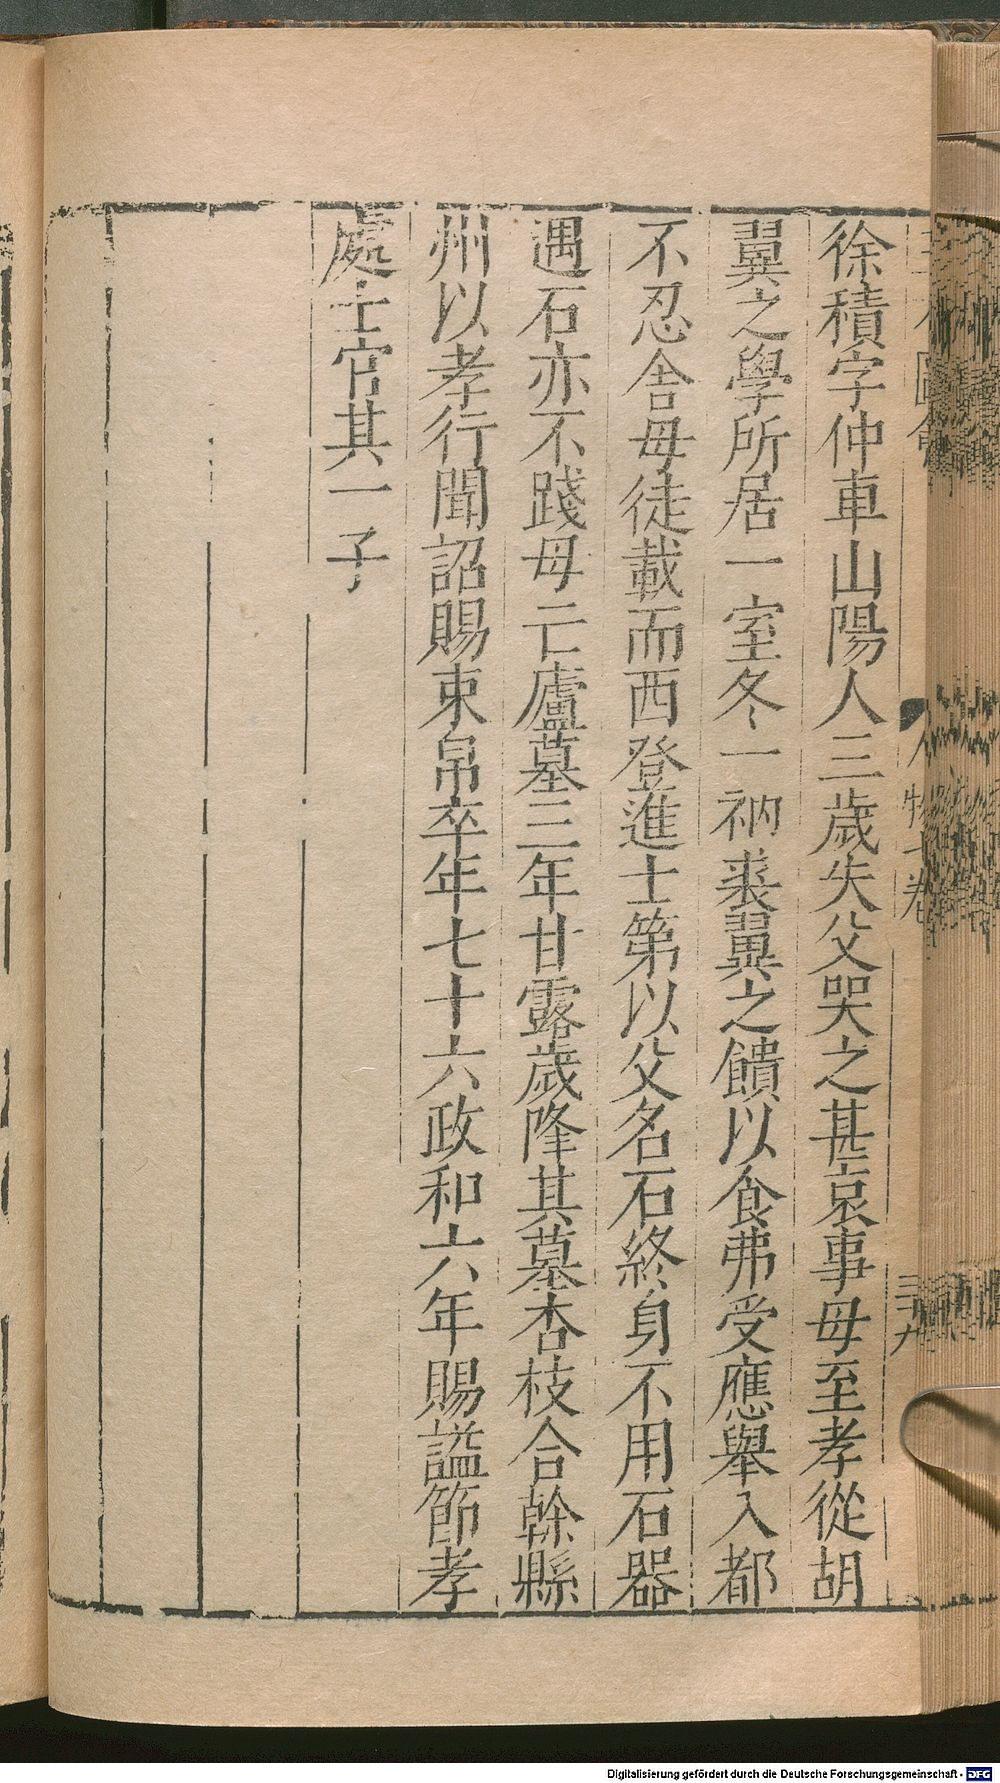 徐積字仲車山陽人三歲失父哭之甚哀事母至孝從胡
翼之學所居一室冬一衲裘翼之饋以食弗受應舉入都
不忍舍母徒載而西登進士第以父名石終身不用石器
遇石亦不踐母亡廬墓三年甘露歲降其墓杏枝合幹縣
州以孝行聞詔賜束帛卒年七十六政和六年賜謚節孝
處士官其一子
人物七卷
三十九
Digitalisierung gefördert durch die Deutsche Forschungsgemeinschaft - DFG